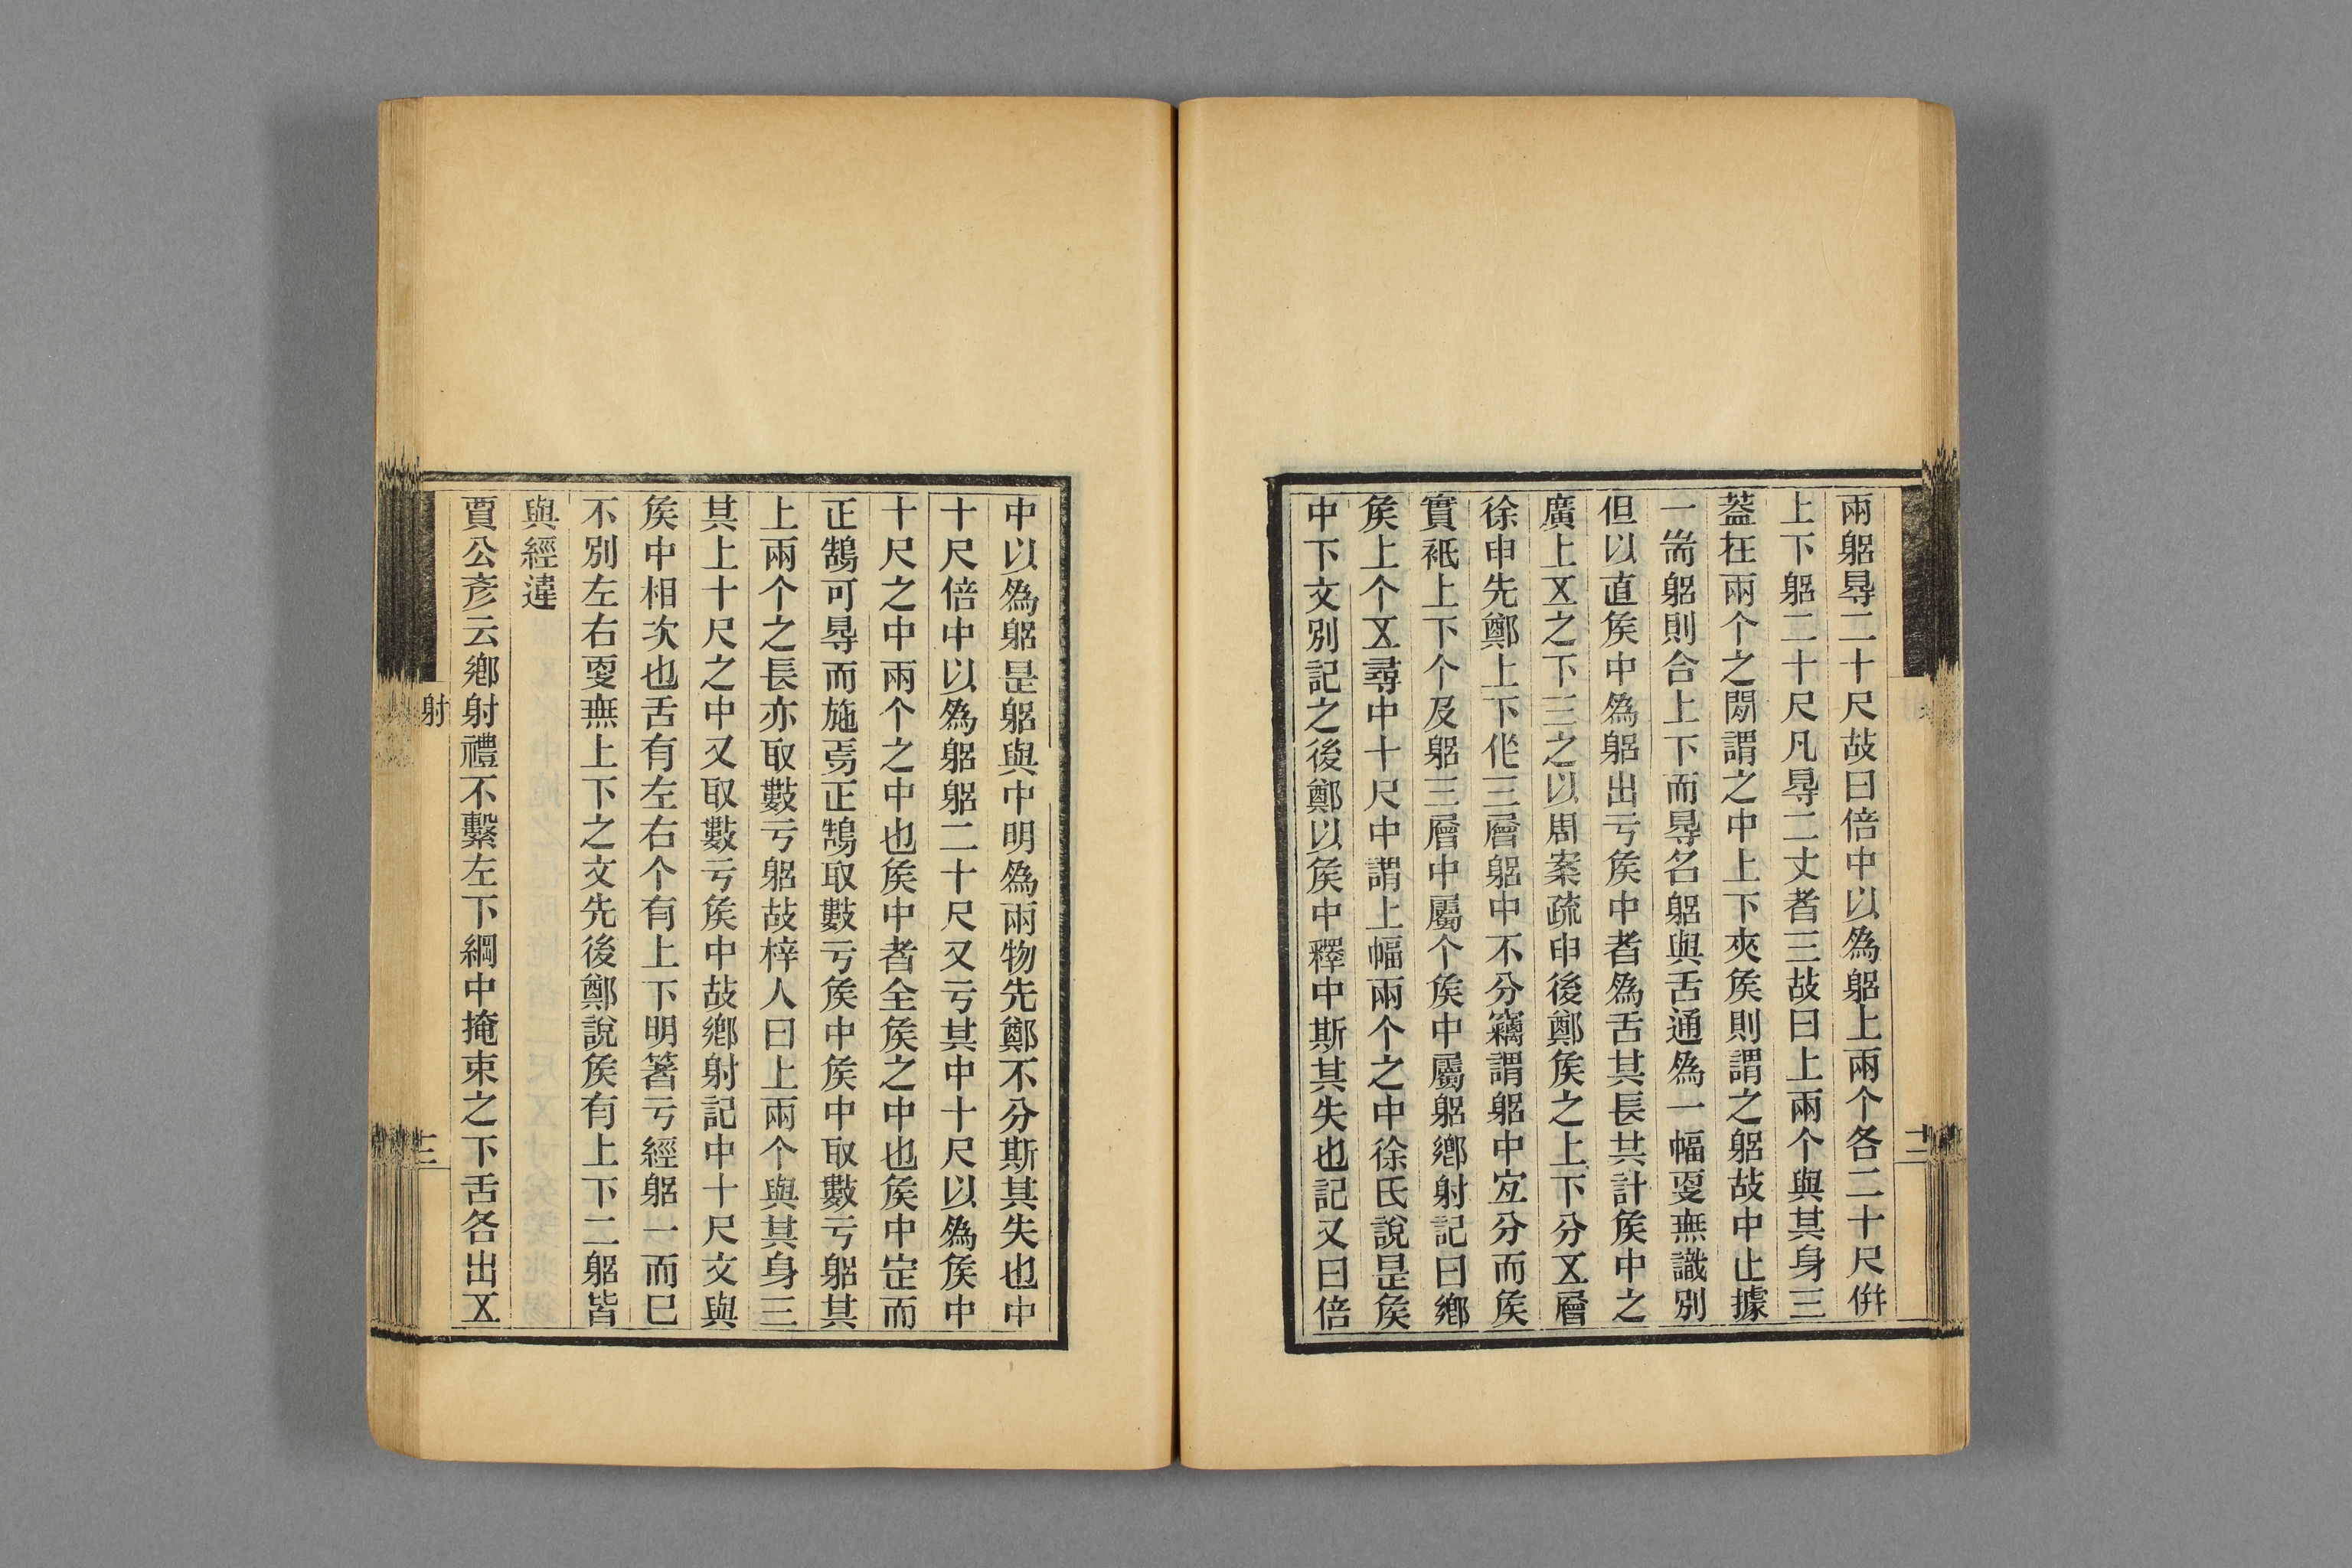 兩躳㝵二十尺故曰倍中以爲躳上兩个各二十尺倂
上下躳二十尺凡㝵二丈者三故曰上兩个與其身三
葢在兩个之閒謂之中上下夾矦則謂之躳故中止據
一耑躳則合上下而㝵名躳與舌通爲一幅㪅無識別
但以直矦中爲躳出亏矦中者爲舌其長其計矦中之
廣上㐅之下三之以周案疏申後鄭矦之上下分㐅層
徐申先鄭上下㑅三層躳中不分竊謂躳中宐分而矦
實祗上下个及躳三層中屬个矦中屬躳鄉射記曰鄉
矦上个㐅尋中十尺中謂上幅兩个之中徐氏說是矦
中下文別記之後鄭以矦中釋中斯其失也記又曰倍
中以爲躳是躳與中明爲兩物先鄭不分斯其失也中
十尺倍中以爲躳躳二十尺又亏其中十尺以爲矦中
十尺之中兩个之中也矦中者全矦之中也矦中定而
正鵠可㝵而施焉正鵠取數亏矦中矦中取數亏躳其
上兩个之長亦取數亏躳故梓人曰上兩个與其身三
其上十尺之中又取數亏矦中故鄉射記中十尺文與
矦中相次也舌有左右个有上下明箸亏經躳一而已
不別左右㪅無上下之文先後鄭說矦有上下二躳皆
與經違
賈公彥云鄉射禮不繫左下綱中掩束之下舌各出㐅
射
十三